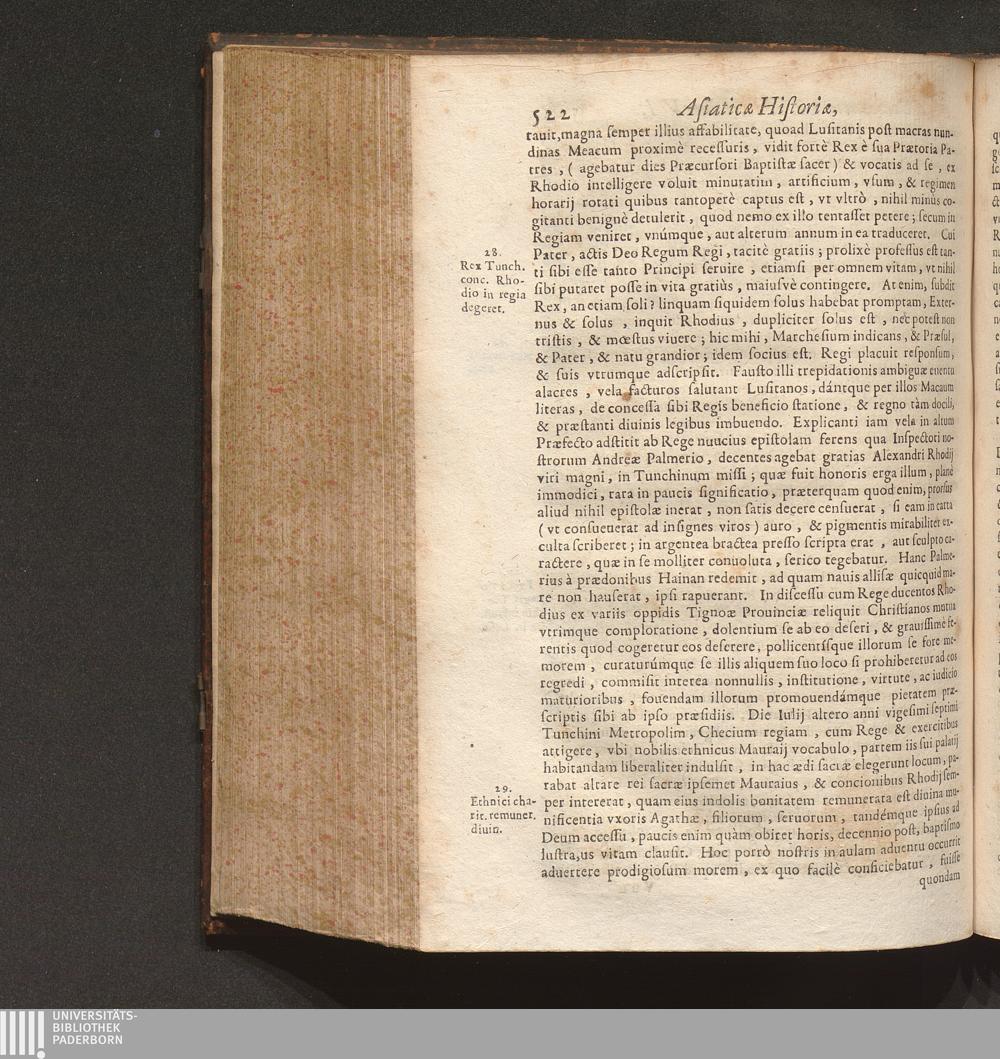 522 Asiaticæ Historiæ,
rauit, magna semper illius affabilitate, quoad Lusitanis post macras nun-
dinas Meacum proximè recessuris, vidit fortè Rex è sua Prætoria Pa-
tres, (agebatur dies Præcursori Baptistæ sacer) & vocatis ad se, ex
Rhodio intelligere voluit minutatim, artificium, vsum, & regimen
horarij rotati quibus tantoperè captus est, vt vltrò, nihil minùs co-
gitanti benignè detulerit, quod nemo ex illo tentasset petere; secum in
Regiam veniret, vnúmque, aut alterum annum in ea traduceret. Cui
Pater, actis Deo Regum Regi, tacitè gratiis; prolixè professus est tan-
ti sibi esse tanto Principi seruire, etiamsi per omnem vitam, vt nihil
sibi putaret posse in vita gratiùs, maiusvè contingere. At enim, subdit
Rex, an etiam soli? linquam siquidem solus habebat promptam, Exter-
nus & solus, inquit Rhodius, dupliciter solus est, nec potest non
tristis, & mœstus viuere; hic mihi, Marchesium indicans, & Præsul,
& Pater, & natu grandior; idem socius est. Regi placuit responsum,
& suis vtrumque adscripsit. Fausto illi trepidationis ambiguæ euentu
alacres, vela facturos salutant Lusitanos, dántque per illos Macaum
literas, de concessa sibi Regis beneficio statione, & regno tàm docili,
& præstanti diuinis legibus imbuendo. Explicanti iam vela in altum
Præfecto adstitit ab Rege nuucius epistolam ferens qua Inspectori no-
strorum Andreæ Palmerio, decentes agebat gratias Alexandri Rhodij
viri magni, in Tunchinum missi; quæ fuit honoris erga illum, planè
immodici, rara in paucis significatio, præterquam quod enim, prorsus
aliud nihil epistolæ inerat, non satis decere censuerat, si eam in carta
(vt consueuerat ad insignes viros) auro, & pigmentis mirabiliter ex-
culta scriberet; in argentea bractea presso scripta erat, aut sculpto ca-
ractere, quæ in se molliter conuoluta, serico tegebatur. Hanc Palme-
rius à prædonibus Hainan redemit, ad quam nauis allisæ quicquid ma-
re non hauserat, ipsi rapuerant. In discessu cum Rege ducentos Rho-
dius ex variis oppidis Tignoæ Prouinciæ reliquit Christianos mutua
vtrimque comploratione, dolentium se ab eo deseri, & grauissimè fe-
rentis quod cogeretur eos deserere, pollicentísque illorum se fore me-
morem, curaturúmque se illis aliquem suo loco si prohiberetur ad eos
regredi, commisit interea nonnullis, institutione, virtute, ac iudicio
maturioribus, fouendam illorum promouendámque pietatem præ-
scriptis sibi ab ipso præsidiis. Die Iulij altero anni vigesimi septimi
Tunchini Metropolim, Checium regiam, cum Rege & exercitibus
attigere, vbi nobilis ethnicus Mauraij vocabulo, partem iis sui palatij
habitandam liberaliter indulsit, in hac ædi sacræ elegerunt locum, pa-
rabat altare rei sacræ ipsemet Mauraius, & concionibus Rhodij sem-
per intererat, quam eius indolis bonitatem remunerata est diuina mu-
nificentia vxoris Agathæ, filiorum, seruorum, tandémque ipsius ad
Deum accessu, paucis enim quàm obiret horis, decennio post, baptismo
lustra,us vitam clausit. Hoc porrò nostris in aulam aduentu occurrit
aduertere prodigiosum morem, ex quo facilè conficiebatur, fuisse
quondam
28.
Rex Tunch.
conc. Rho-
dio in regia
degeret.
29.
Ethnici cha-
rit. remuner.
diuin.
UNIVERSITÄTS-
BIBLIOTHEK
PADERBORN